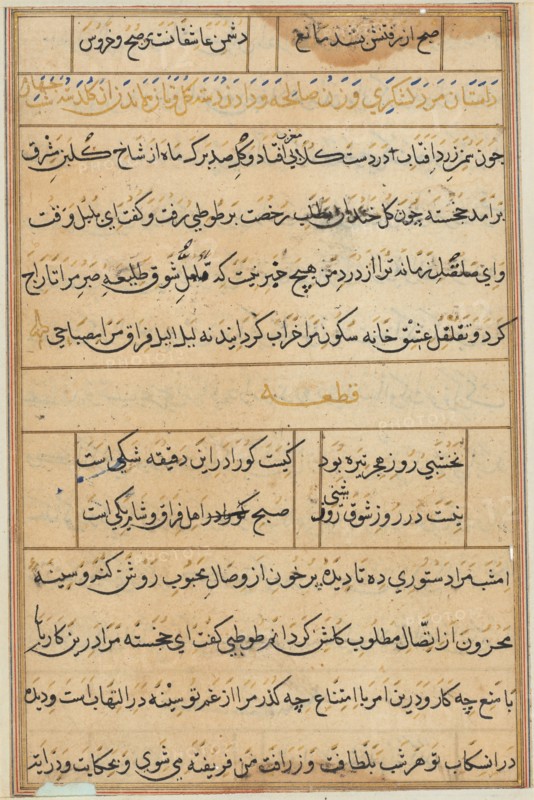 صبح از رفتنش بشد مانع
دشمن عاشقانست صبح و خروس
داستان مرد لشکری و زن صالحه و دادن دسته گل و باز ماندن آن گلدسته
چون ثمر زرد افتاب در دست کلابی مغرب افتاد و گل صدبرک ماه از شاخ کلبن شرق
برامد خجسته چون کل خندان بطلب رخصت بر طوطی رفت و کفت ای بلبل وقت
و ای صلصل زمانه ترا از درد من هیچ خبر نیست که شوق طلیعه صبر مرا تاراج
کرد و تقلقل عشق خانه سکون مرا خراب کردانید نه لیل الیل فراق مرا مصباحی
قطعه
نخشبی روز هجر تیره بود
کیست کورا در این دقیقه شکی است
نیست در روز شوق روشنی
صبح اهل فراق و شام یکی است
امشب مرا دستوری ده تا دیده پر خون از وصال محبوب روشن کنم و سینه
محزون از اتصال مطلوب کلشن کردانم طوطی کفت ای خجسته مرا درین کار با
با منع چه کار و درین امر با امتناع چه کذر مرا از غم تو سینه در التهاب است و دیده
در انسکاب تو هر شب بلطافت و زرافت من فریفته می شوی و بحکایت و درایت